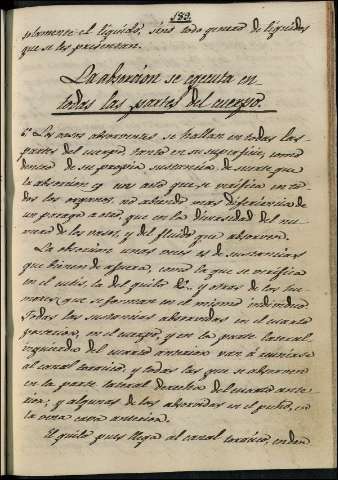 189.
solamente el líquido, sino todo genero de líquidos
que se les presentan.
La absorcion se egecuta en
todas las partes del cuerpo.
6º Los vasos absorventes se hallan en todas las
partes del cuerpo, tanto en su superficie, como
dentro de su propia sustancia, de suerte que
la absorcion es una accion que se verifica en to-
dos los organos, no habiendo mas diferiencia de
un parage a otro, que en la diversidad del nu-
mero de los vasos, y del fluido que absorven.
La absorcion unas veces es de sustancias
que bienen de afuera, como la que se verifica
en el cutis, la del quilo &ª., y otras de los hu-
mores que se forman en el mismo individuo.
Todas las sustancias absorvidas en el cuarto
posterior, en el cuerpo, y en la parte lateral
izquierda del cuarto anterior van á
al canal toracico, y todas las que se absorven
en la parte lateral derecha del cuarto ante-
rior; y algunas de las absorvidas en el pecho, en
la vena cava anterior.
El quilo pues llega al canal toracico, en don